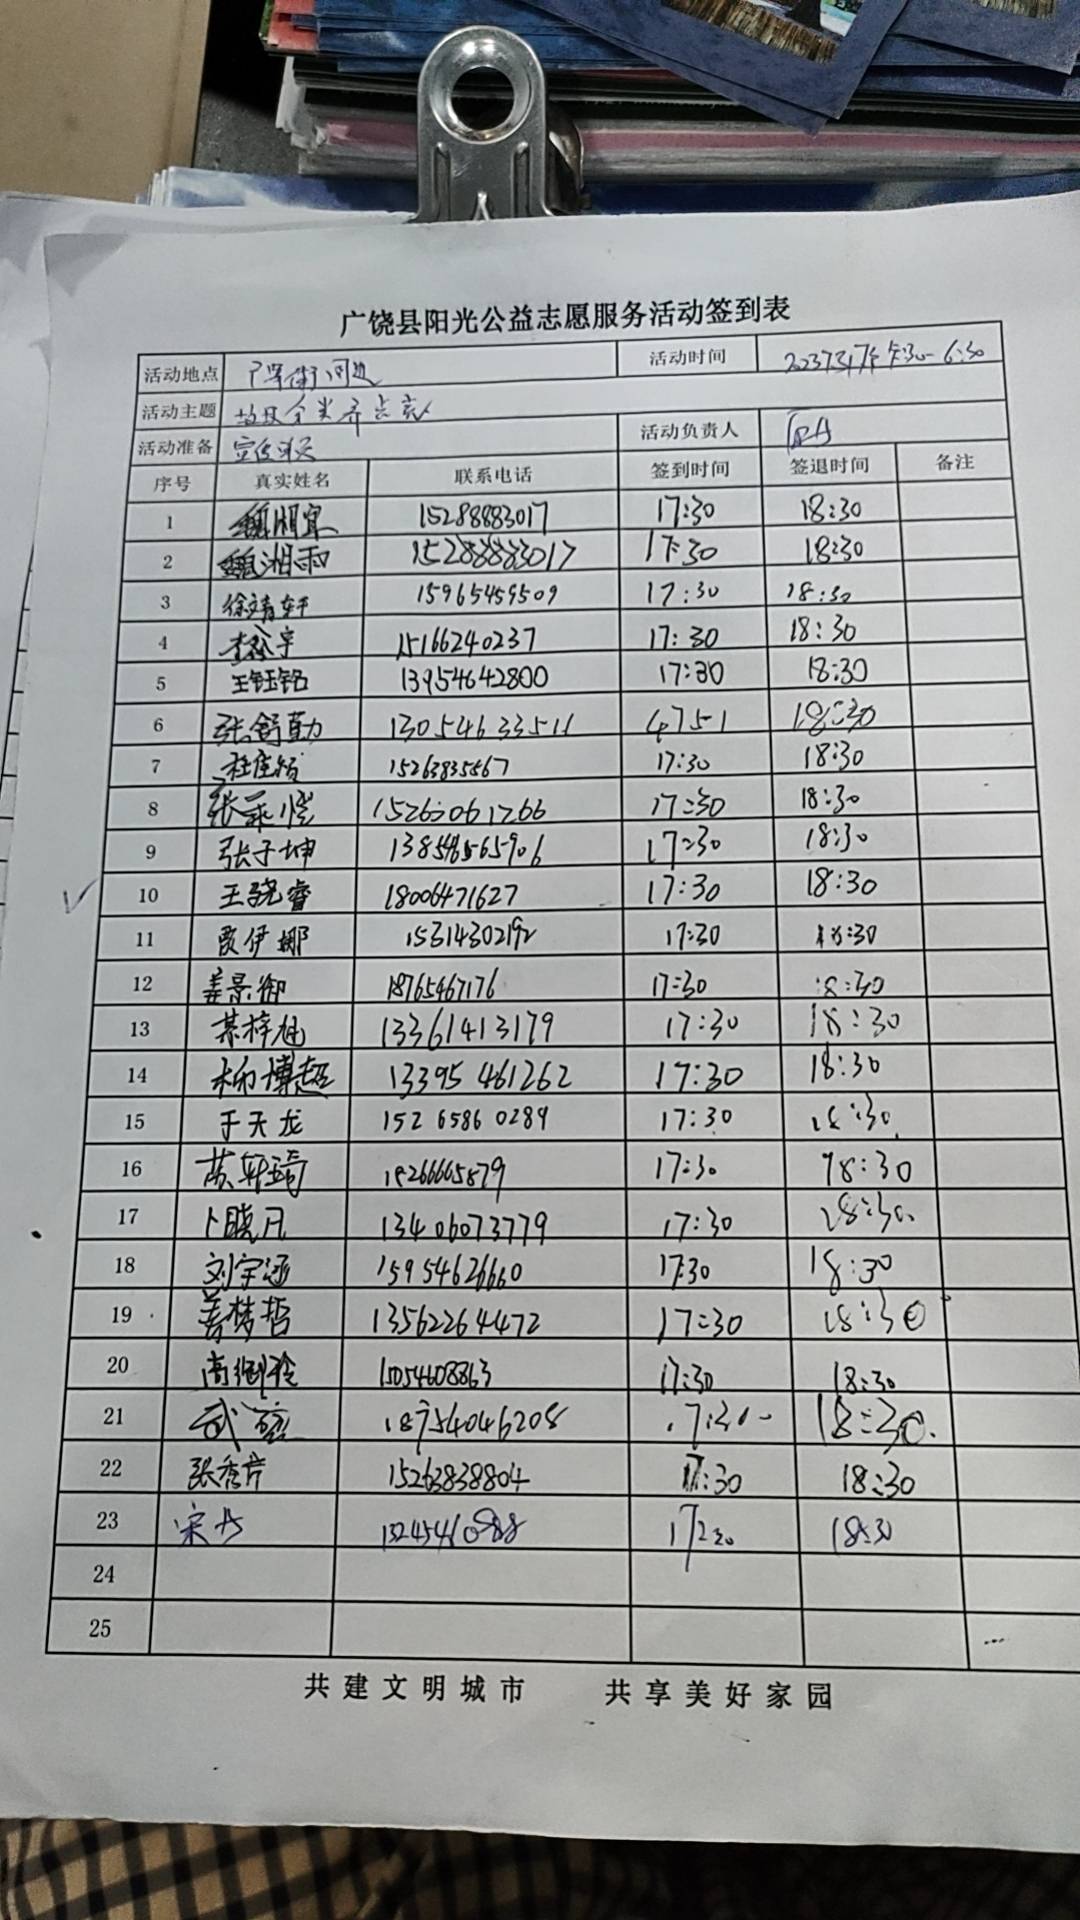 广饶县阳光公益志愿服务活动签到表
活动地点 活动时间
活动主题 垃圾分类
活动准备 活动负责人
序号 真实姓名 联系电话 签到时间 签退时间 备注
1 魏湘宜 15288883017 17:30 18:30
2 魏湘雨 15288883017 17:30 18:30
3 徐靖轩 15965459509 17:30 18:30
4 15166240237 17:30 18:30
5 王钰铭 13954642800 17:30 18:30
6 张舒勤 13054633511 4751 18:30
7 15263835567 17:30 18:30
8 17:30 18:30
9 张子坤 17:30 18:30
10 王骁睿 18006471627 17:30 18:30
11 贾伊娜 15314302192 17:30 18:30
12 姜景御 18765467176 17:30 18:30
13 綦梓旭 13361413179 17:30 18:30
14 柳博超 13395461262 17:30 18:30
15 于天龙 15265860289 17:30 18:30
16 17:30 18:30
17 卜晓凡 13406073779 17:30 18:30
18 刘宇涵 15954626660 17:30 18:30
19 姜梦哲 13562264472 17:30 18:30
20 15054608863 17:30 18:30
21 18754046208 17:30 18:30
22 张秀芹 15263838804 17:30 18:30
23 宋丹 17:30 18:30
24
25
共建文明城市 共享美好家园